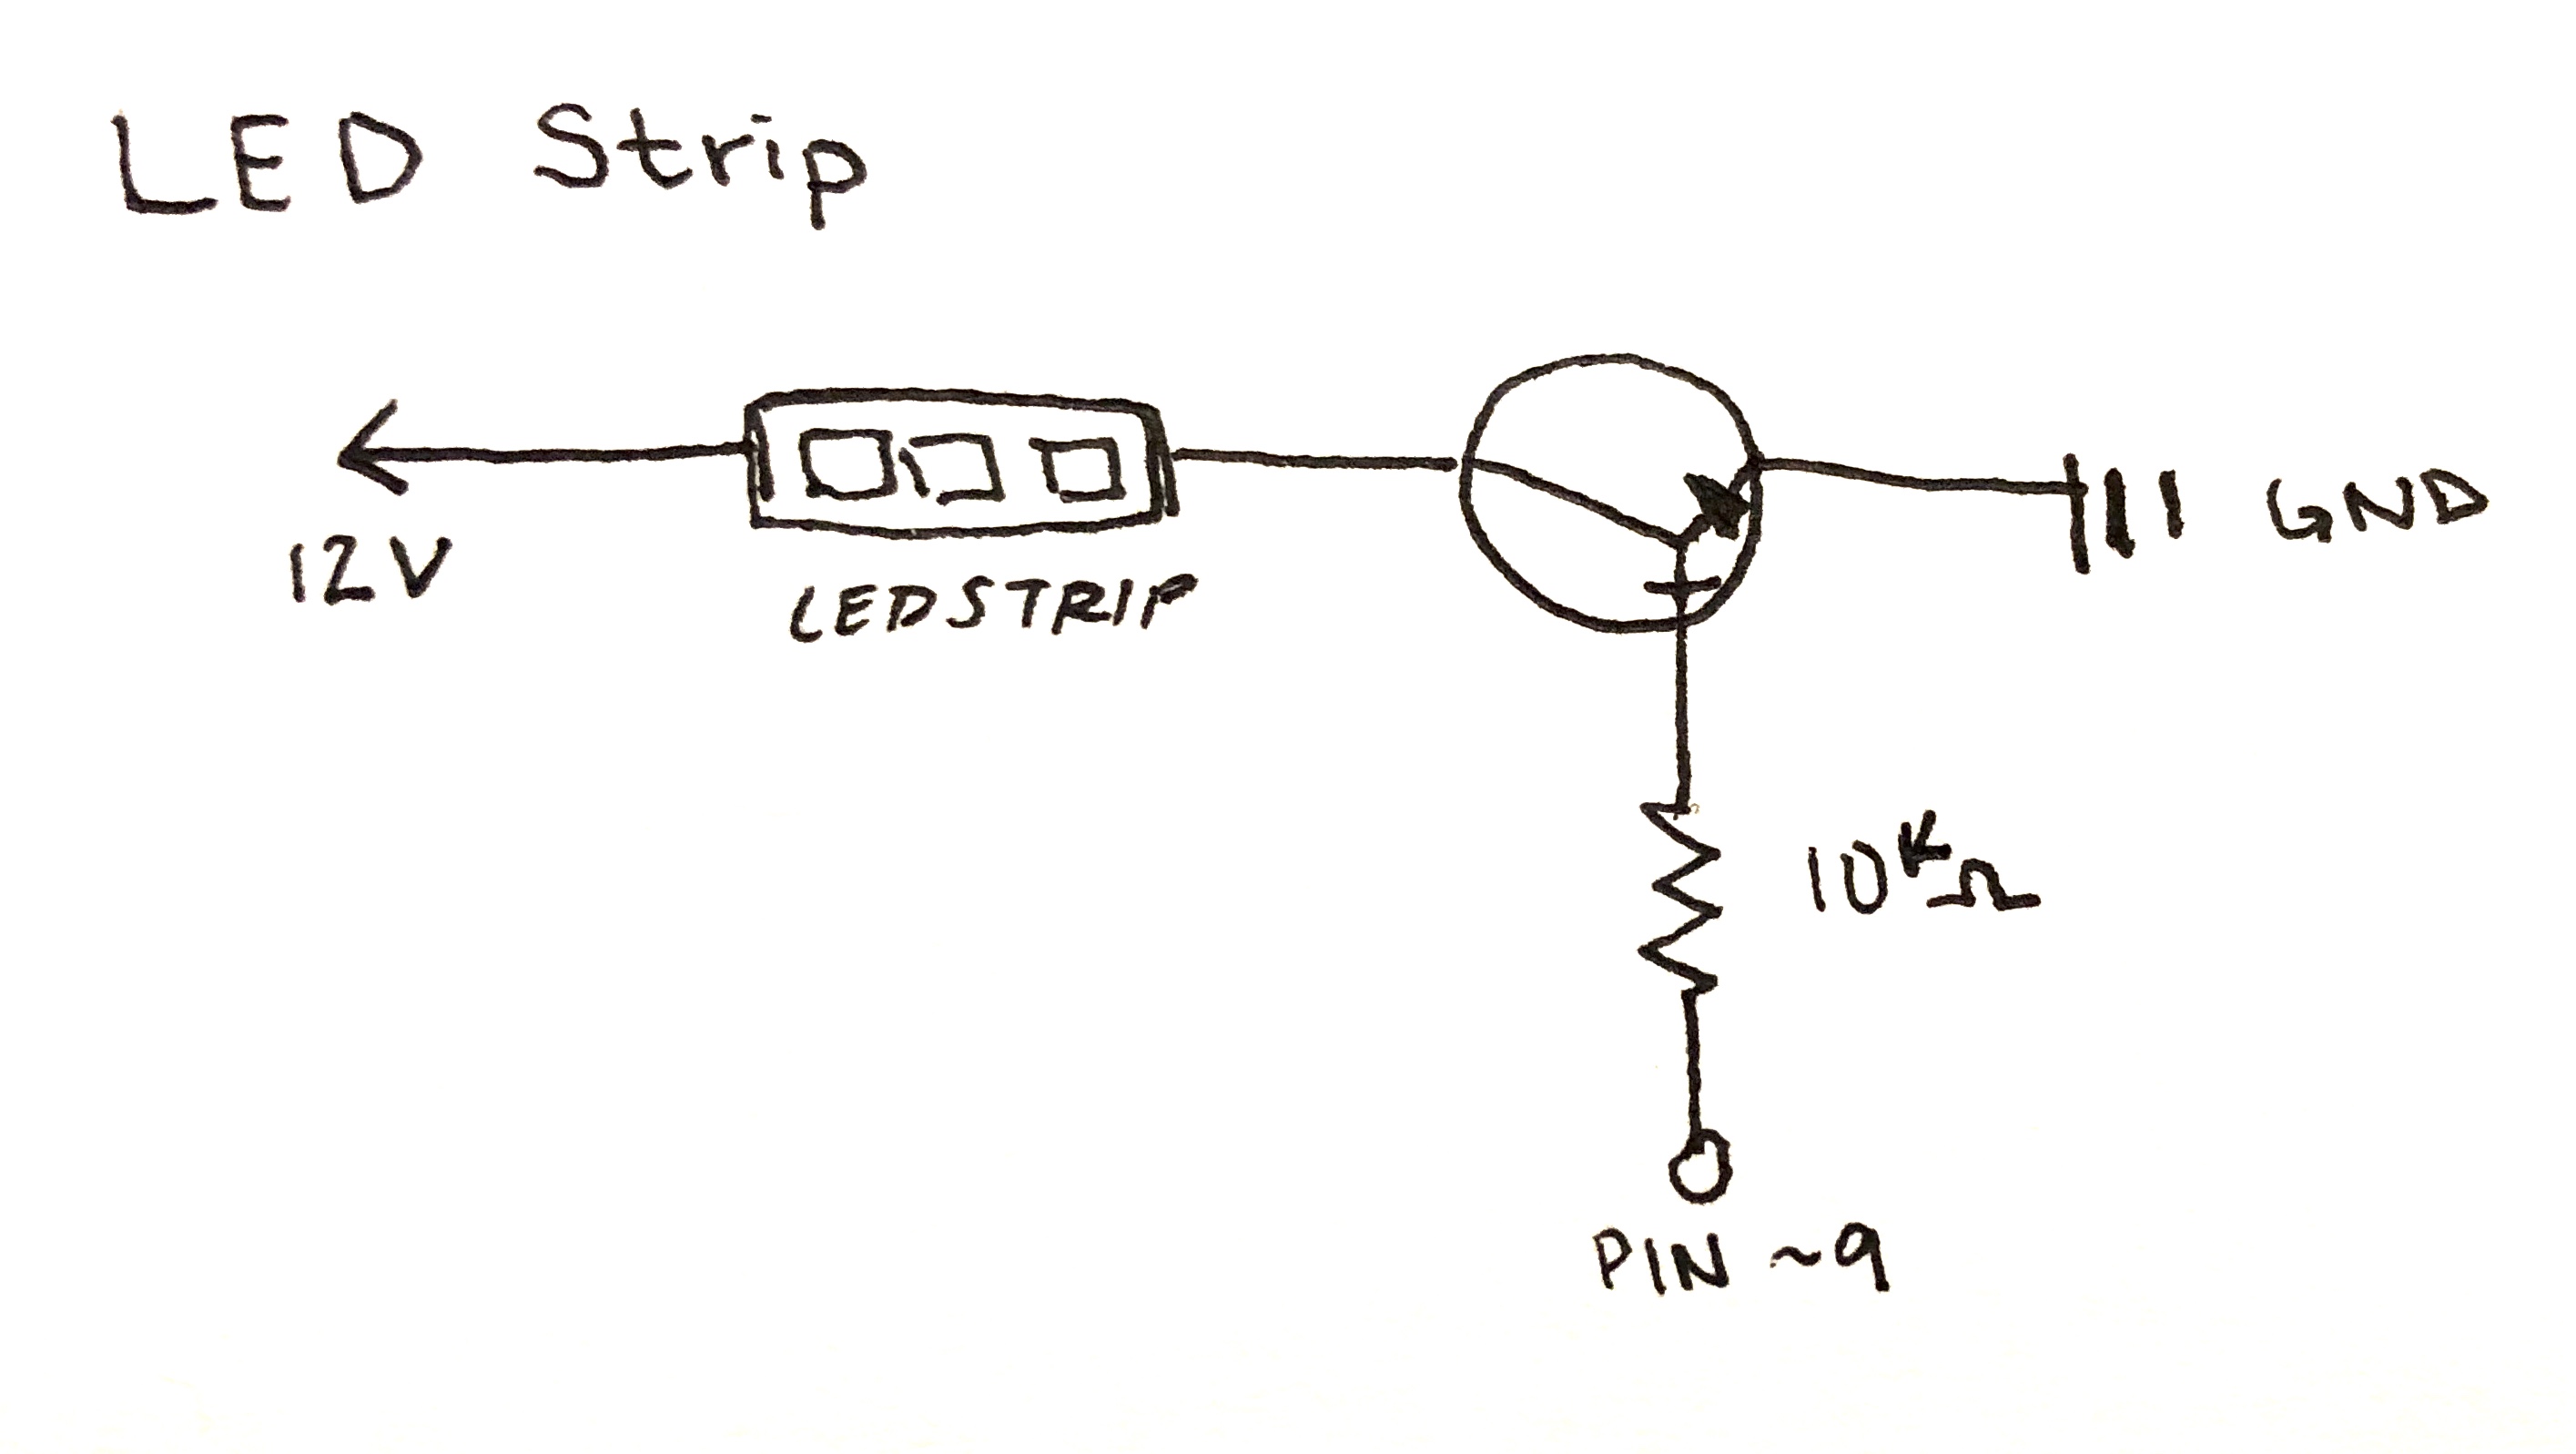 LED Strip
12V
LEDSTRIP
GND
10KΩ
PIN ~9